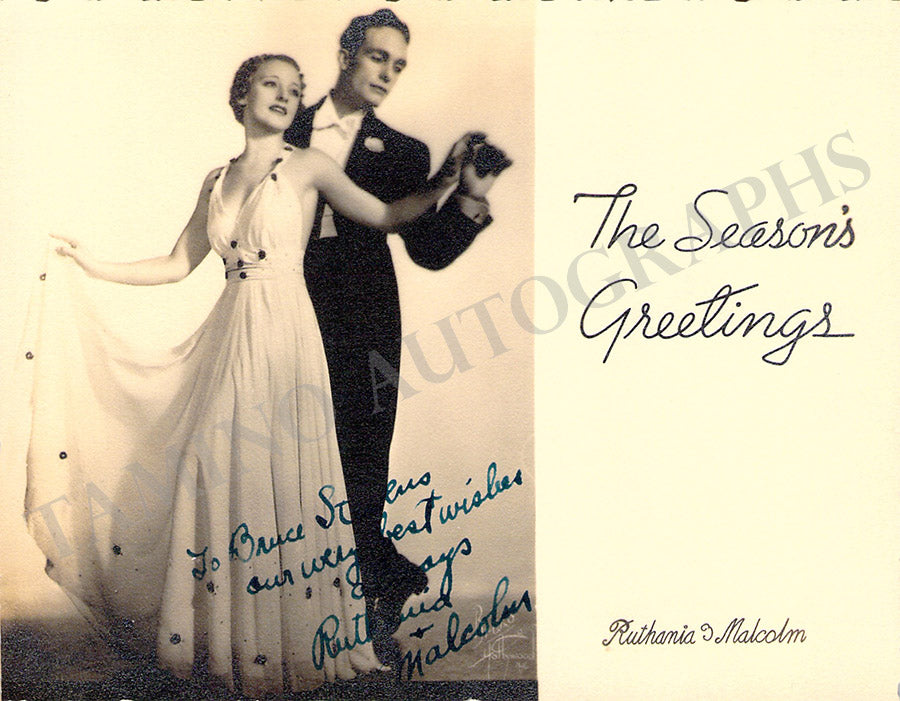 To Bruce
our very best wishes
Ruthania
+
Malcolm
The Season's
Greetings
Ruthania & Malcolm
TAMINO AUTOGRAPHS